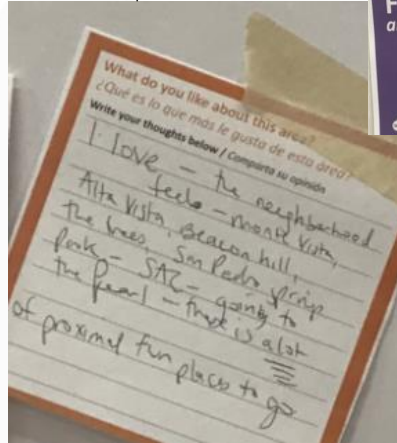 What do you like about this area?
¿Qué es lo que más le gusta de esta área?
Write your thoughts below / Comparta su opinión
I love - the neighborhood
feels - monte Vista,
Alta Vista, Beacon hill,
the trees, San Pedro springs
Park - SAC - going to
the pearl - there is a lot
of proximal fun places to go